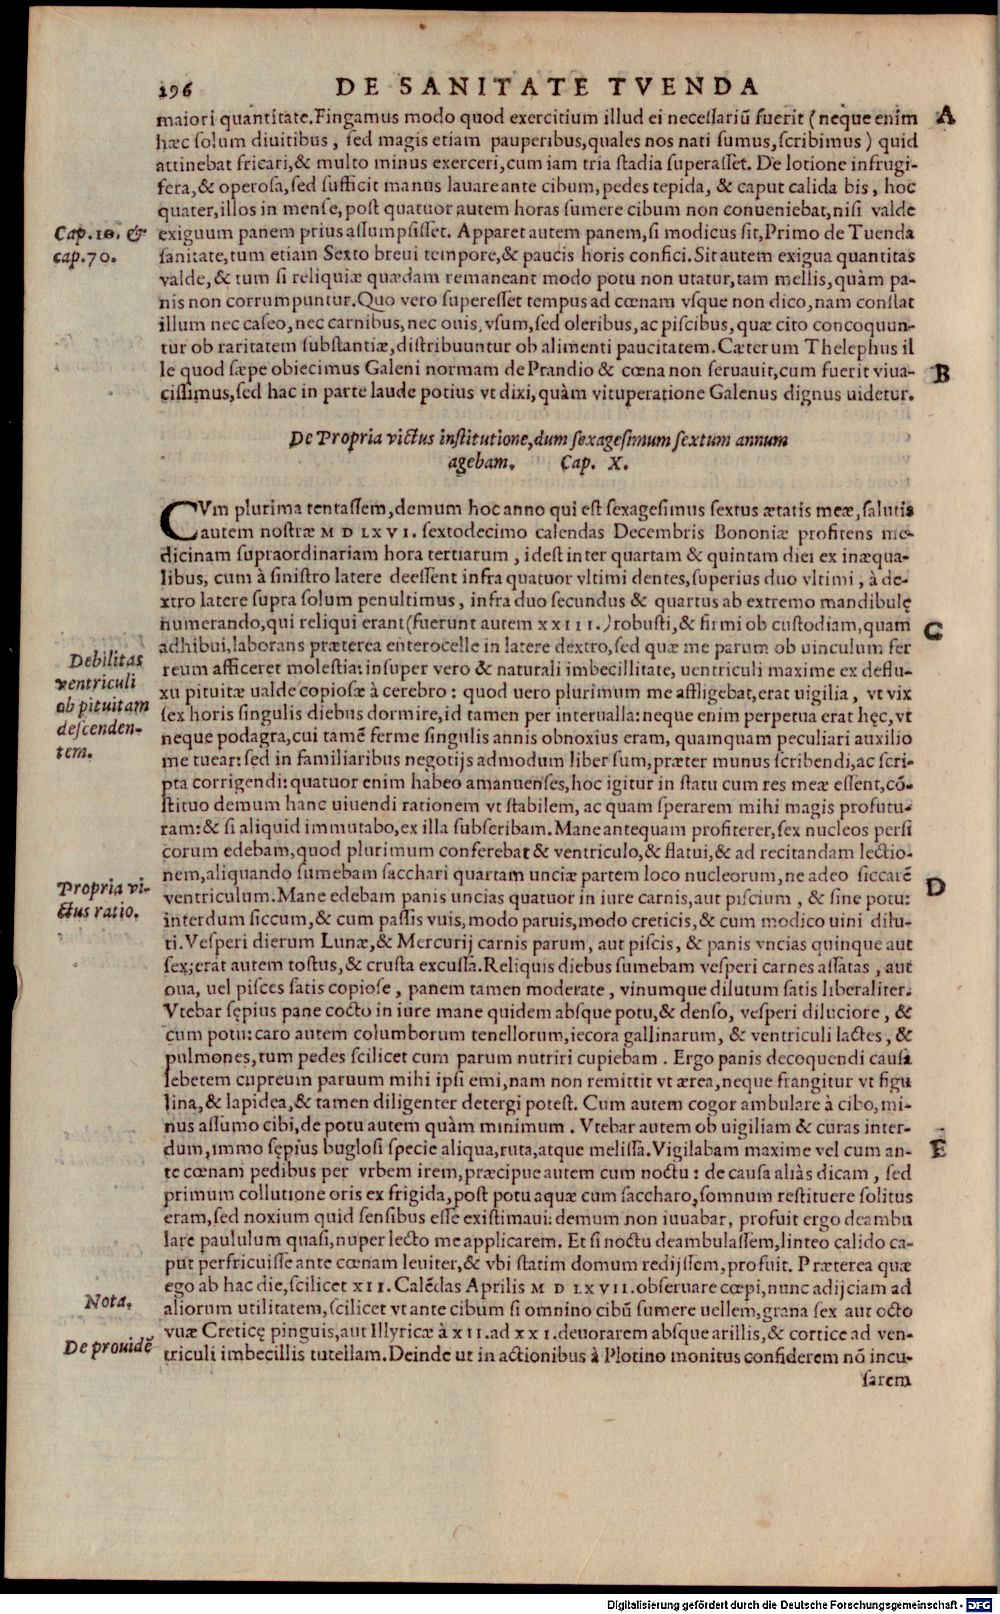 296 DE SANITATE TVENDA
maiori quantitate. Fingamus modo quod exercitium illud ei necessariũ fuerit (neque enim
hæc solum diuitibus, sed magis etiam pauperibus, quales nos nati sumus, scribimus) quid
attinebat fricari, & multo minus exerceri, cum iam tria stadia superasset. De lotione infrugi-
fera, & operosa, sed sufficit manus lauare ante cibum, pedes tepida, & caput calida bis, hoc
quater, illos in mense, post quatuor autem horas sumere cibum non conueniebat, nisi valde
exiguum panem prius assumpsisset. Apparet autem panem, si modicus sit, Primo de Tuenda
sanitate, tum etiam Sexto breui tempore, & paucis horis confici. Sit autem exigua quantitas
valde, & tum si reliquiæ quædam remaneant modo potu non utatur, tam mellis, quàm pa-
nis non corrumpuntur. Quo vero superesset tempus ad cœnam vsque non dico, nam constat
illum nec caseo, nec carnibus, nec ouis, vsum, sed oleribus, ac piscibus, quæ cito concoquun-
tur ob raritatem substantiæ, distribuuntur ob alimenti paucitatem. Cæterum Thelephus il
le quod sæpe obiecimus Galeni normam de Prandio & cœna non seruauit, cum fuerit viua-
cissimus, sed hac in parte laude potius vt dixi, quàm vituperatione Galenus dignus uidetur.
A
B
Cap. 10. &
cap. 70.
De Propria victus institutione, dum sexagesimum sextum annum
agebam. Cap. X.
CVm plurima tentassem, demum hoc anno qui est sexagesimus sextus ætatis meæ, salutis
autem nostræ M D LXVI. sextodecimo calendas Decembris Bononiæ profitens me-
dicinam supraordinariam hora tertiarum, idest inter quartam & quintam diei ex inæqua-
libus, cum à sinistro latere deessent infra quatuor vltimi dentes, superius duo vltimi, à de-
xtro latere supra solum penultimus, infra duo secundus & quartus ab extremo mandibulę
numerando, qui reliqui erant (fuerunt autem XXIII.) robusti, & firmi ob custodiam, quam
adhibui, laborans præterea enterocelle in latere dextro, sed quæ me parum ob uinculum fer
reum afficeret molestia: insuper vero & naturali imbecillitate, uentriculi maxime ex deflu-
xu pituitæ ualde copiosæ à cerebro: quod uero plurimum me affligebat, erat uigilia, vt vix
sex horis singulis diebus dormire, id tamen per interualla: neque enim perpetua erat hęc, vt
neque podagra, cui tamẽ ferme singulis annis obnoxius eram, quamquam peculiari auxilio
me tuear: sed in familiaribus negotijs admodum liber sum, præter munus scribendi, ac scri-
pta corrigendi: quatuor enim habeo amanuenses, hoc igitur in statu cum res meæ essent, cõ-
stituo demum hanc uiuendi rationem vt stabilem, ac quam sperarem mihi magis profutu-
ram: & si aliquid immutabo, ex illa subscribam. Mane antequam profiterer, sex nucleos persi
corum edebam, quod plurimum conferebat & ventriculo, & flatui, & ad recitandam lectio-
nem, aliquando sumebam sacchari quartam unciæ partem loco nucleorum, ne adeo siccarẽ
ventriculum. Mane edebam panis uncias quatuor in iure carnis, aut piscium, & sine potu:
interdum siccum, & cum passis vuis, modo paruis, modo creticis, & cum modico uini dilu-
ti. Vesperi dierum Lunæ, & Mercurij carnis parum, aut piscis, & panis vncias quinque aut
sex; erat autem tostus, & crusta excussa. Reliquis diebus sumebam vesperi carnes assatas, aut
oua, uel pisces satis copiose, panem tamen moderate, vinumque dilutum satis liberaliter.
Vtebar sępius pane cocto in iure mane quidem absque potu, & denso, vesperi diluciore, &
cum potu: caro autem columborum tenellorum, iecora gallinarum, & ventriculi lactes, &
pulmones, tum pedes scilicet cum parum nutriri cupiebam. Ergo panis decoquendi causa
lebetem cupreum paruum mihi ipsi emi, nam non remittit vt ærea, neque frangitur vt figu
lina, & lapidea, & tamen diligenter detergi potest. Cum autem cogor ambulare à cibo, mi-
nus assumo cibi, de potu autem quàm minimum. Vtebar autem ob uigiliam & curas inter-
dum, immo sępius buglosi specie aliqua, ruta, atque melissa. Vigilabam maxime vel cum an-
te cœnam pedibus per vrbem irem, præcipue autem cum noctu: de causa aliàs dicam, sed
primum collutione oris ex frigida, post potu aquæ cum saccharo, somnum restituere solitus
eram, sed noxium quid sensibus esse existimaui: demum non iuuabar, profuit ergo deambu
lare paululum quasi, nuper lecto me applicarem. Et si noctu deambulassem, linteo calido ca-
put perfricuisse ante cœnam leuiter, & vbi statim domum redijssem, profuit. Præterea quæ
ego ab hac die, scilicet XII. Calẽdas Aprilis M D LXVII. obseruare cœpi, nunc adijciam ad
aliorum utilitatem, scilicet vt ante cibum si omnino cibũ sumere uellem, grana sex aut octo
vuæ Creticę pinguis, aut Illyricæ à XII. ad XXI. deuorarem absque arillis, & cortice ad ven-
triculi imbecillis tutellam. Deinde ut in actionibus à Plotino monitus confiderem nõ incu-
sarem
C
D
E
Debilitas
ventriculi
ob pituitam
descenden-
tem.
Propria vi-
ctus ratio.
Nota.
De prouidẽ
Digitalisierung gefördert durch die Deutsche Forschungsgemeinschaft - DFG